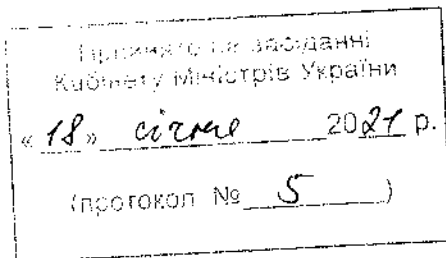 Прийнято на засіданні
Кабінету Міністрів України
«18» січня 2021 р.
(протокол № 5)